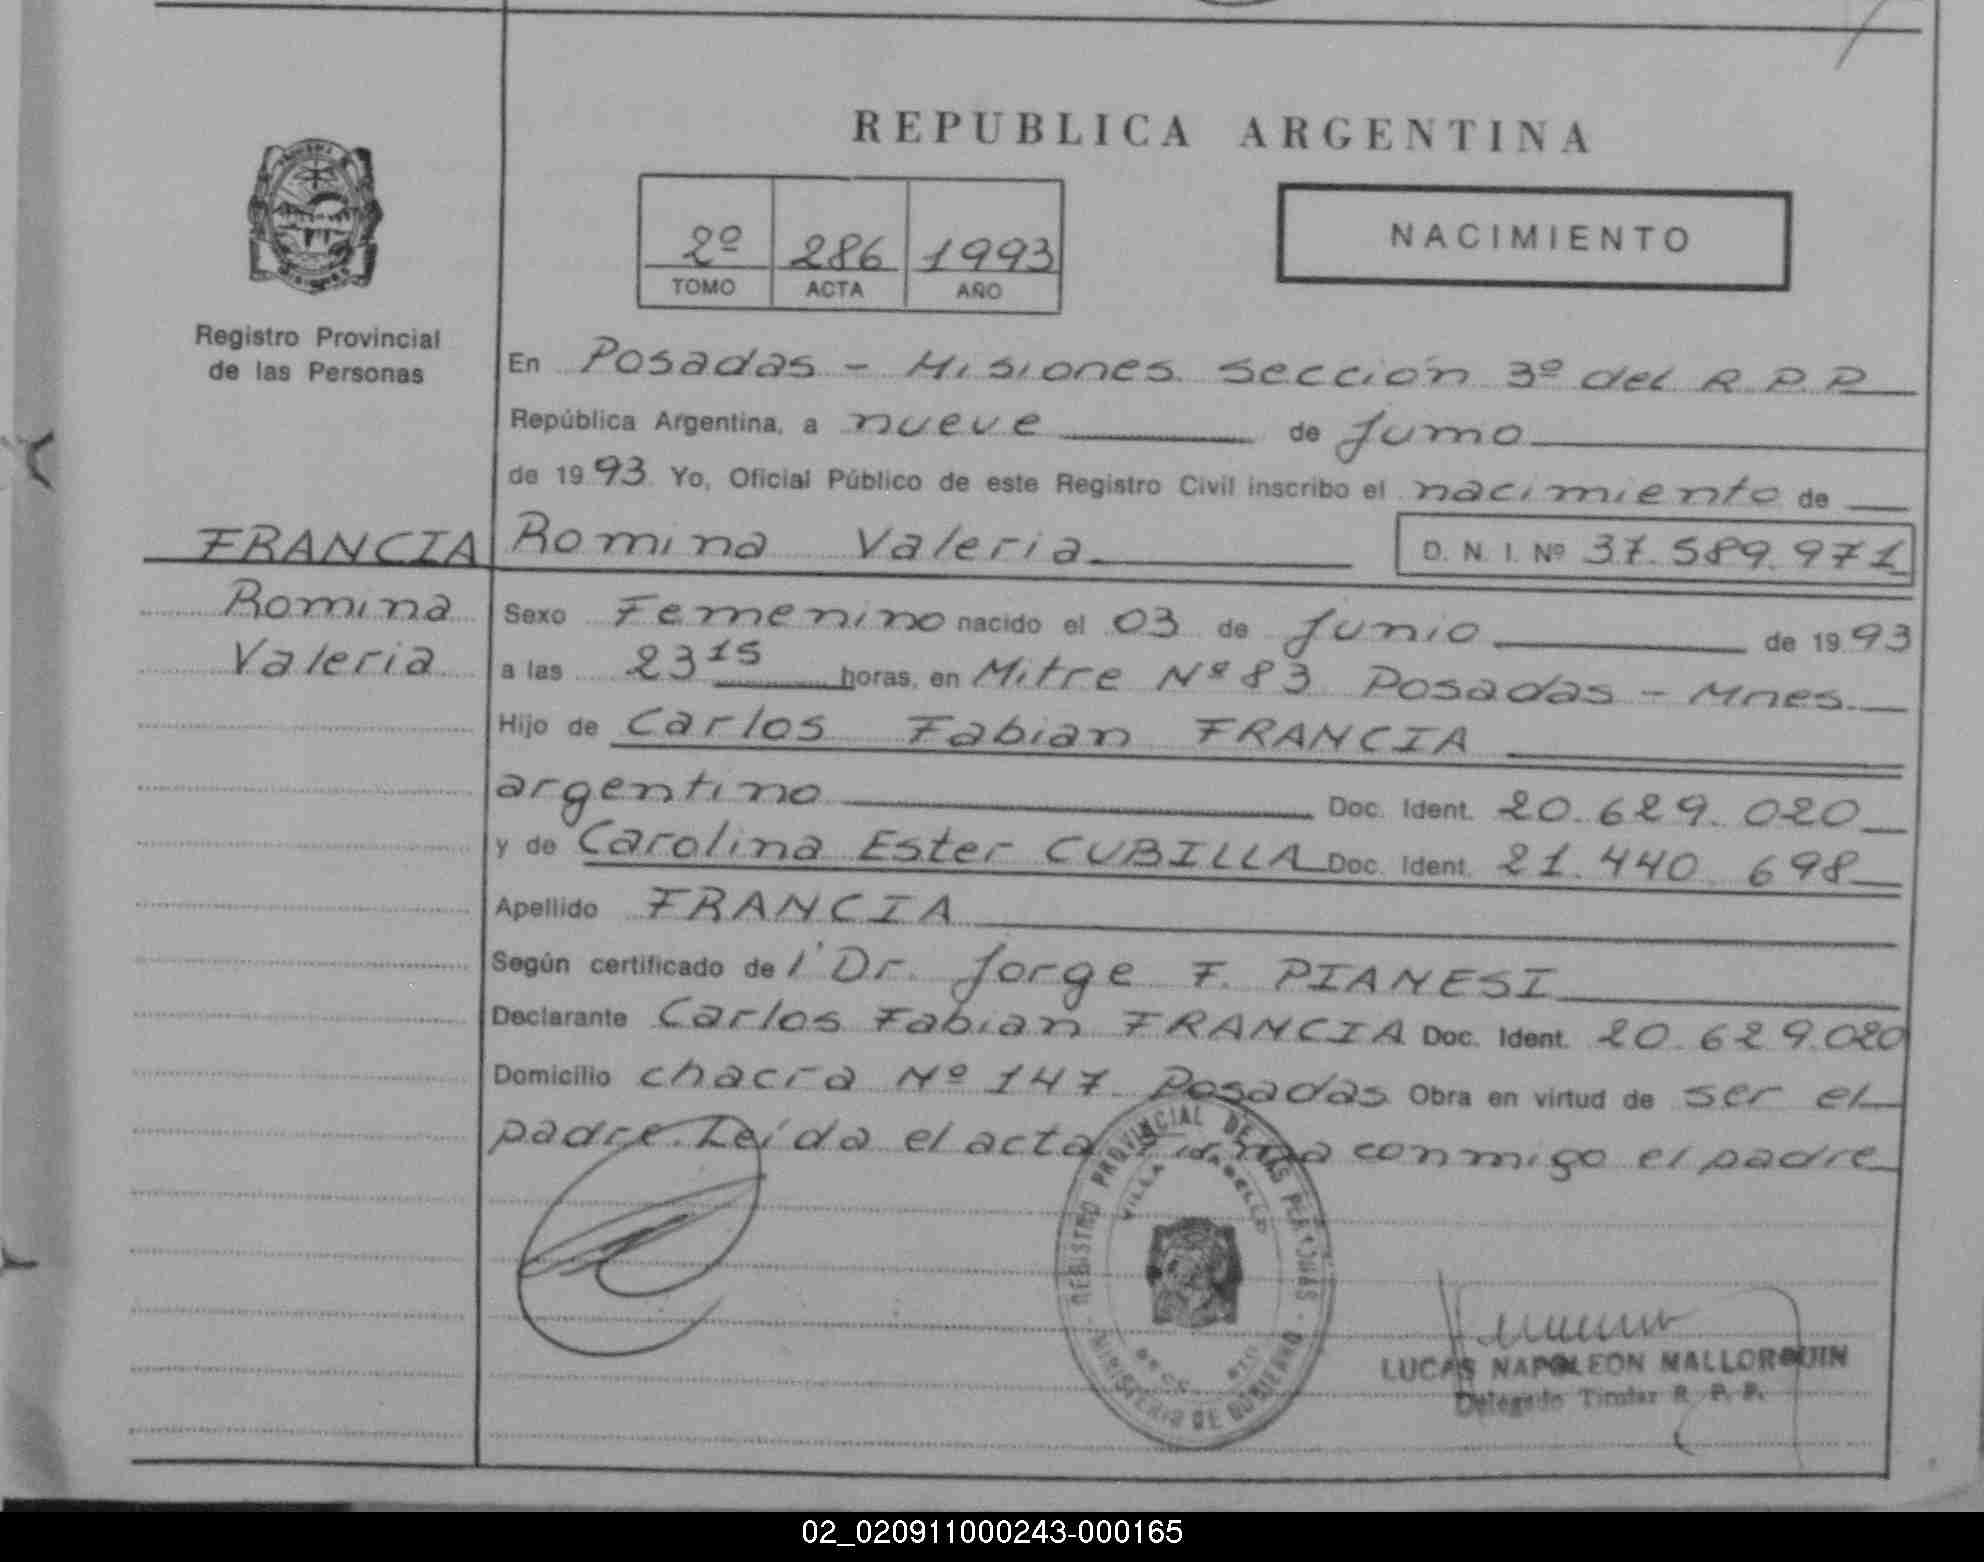 REPUBLICA ARGENTINA
2º 286 1993
TOMO ACTA AÑO
NACIMIENTO
Registro Provincial
de las Personas
FRANCIA
Romina
Valeria
En Posadas - Misiones sección 3º del R.P.P
República Argentina, a nueve de Junio
de 1993 Yo, Oficial Público de este Registro Civil inscribo el nacimiento de
Romina Valeria D. N. I. Nº 37.589.971
Sexo Femenino nacido el 03 de Junio de 1993
a las 23 15 horas, en Mitre Nº 83 Posadas - Mnes.
Hijo de Carlos Fabian FRANCIA
argentino Doc. Ident. 20.629.020
y de Carolina Ester CUBILLA Doc. Ident. 21.440.698
Apellido FRANCIA
Según certificado de l Dr. Jorge F. PIANESI
Declarante Carlos Fabian FRANCIA Doc. Ident. 20.629.020
Domicilio chacra Nº 147 Posadas Obra en virtud de ser el
padre. Leída el acta Firma conmigo el padre
REGISTRO PROVINCIAL DE LAS PERSONAS
VILLA CABELLO
MINISTERIO DE GOBIERNO
LUCAS NAPOLEON MALLORQUIN
Delegado Titular R. P. P.
02_020911000243-000165